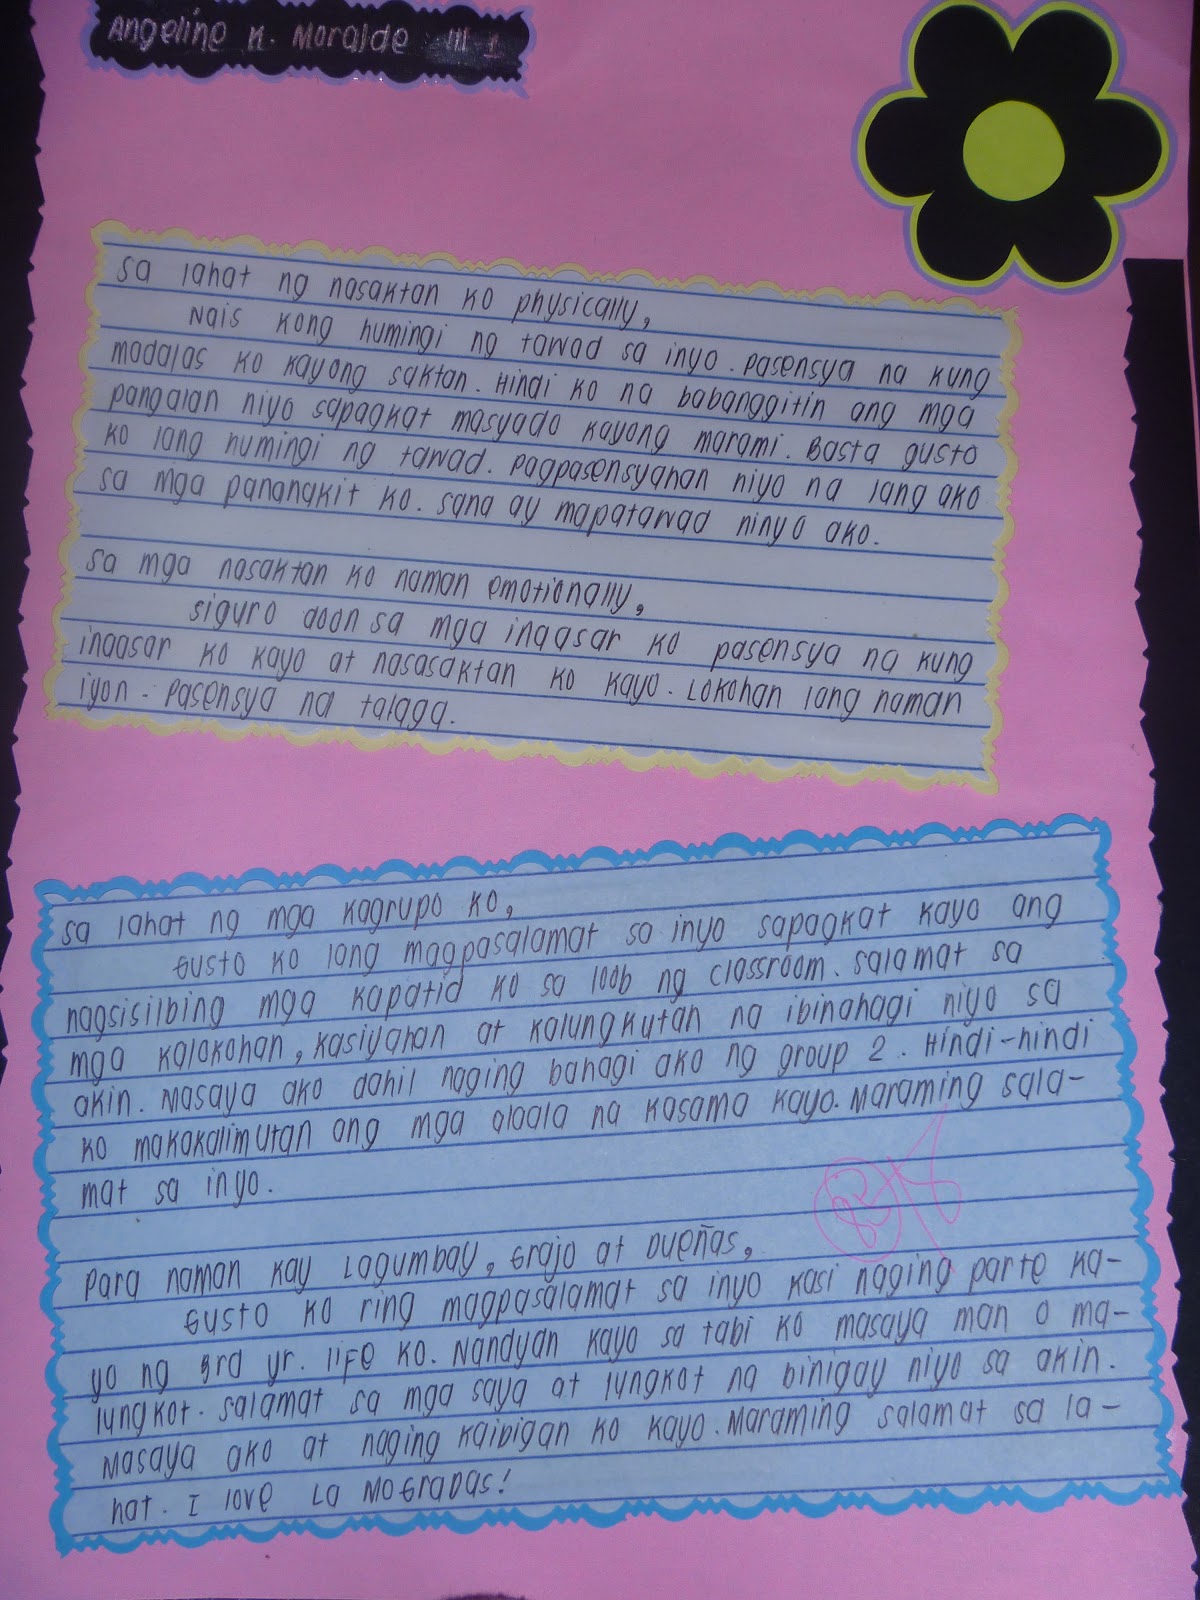 Angeline K. Moralde III 1
Sa lahat ng nasaktan ko physically,
Nais kong humingi ng tawad sa inyo. Pasensya na kung
madalas ko kayong saktan. Hindi ko na babanggitin ang mga
pangalan niyo sapagkat masyado kayong marami. Basta gusto
ko lang humingi ng tawad. Pagpasensyahan niyo na lang ako
sa mga pananakit ko. Sana ay mapatawad ninyo ako.
Sa mga nasaktan ko naman emotionally,
Siguro doon sa mga inaasar ko pasensya na kung
inaasar ko kayo at nasasaktan ko kayo. Lokohan lang naman
iyon. Pasensya na talaga.
Sa lahat ng mga kagrupo ko,
Gusto ko lang magpasalamat sa inyo sapagkat kayo ang
nagsisilbing mga kapatid ko sa loob ng classroom. Salamat sa
mga kalokohan, kasiyahan at kalungkutan na ibinahagi niyo sa
akin. Masaya ako dahil naging bahagi ako ng group 2. Hindi-hindi
ko makakalimutan ang mga alaala na kasama kayo. Maraming sala-
mat sa inyo.
Para naman kay Lagumbay, Grajo at Dueñas,
Gusto ko ring magpasalamat sa inyo kasi naging parte ka-
yo ng 3rd yr. life ko. Nandyan kayo sa tabi ko masaya man o ma-
lungkot. Salamat sa mga saya at lungkot na binigay niyo sa akin.
Masaya ako at naging kaibigan ko kayo. Maraming salamat sa la-
hat. I love La Mogradas!